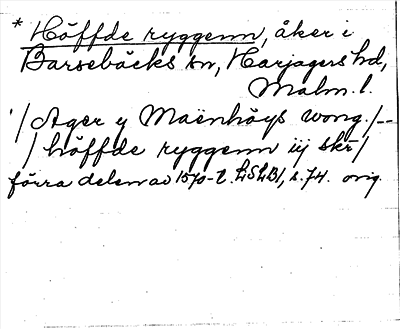 * Höffde ryggenn, åker i
Barsebäcks sn, Harjagers hd,
Malm. l.
/ Ager y Maënhöys wong. / --
/ höffde ryggenn iij skr /
förra delen av 1570-t. LSLB1, s. 74. orig.